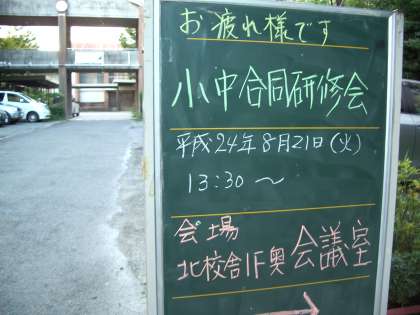 お疲れ様です
小中合同研修会
平成24年8月21日(火)
13:30〜
会場
北校舎1F奥会議室